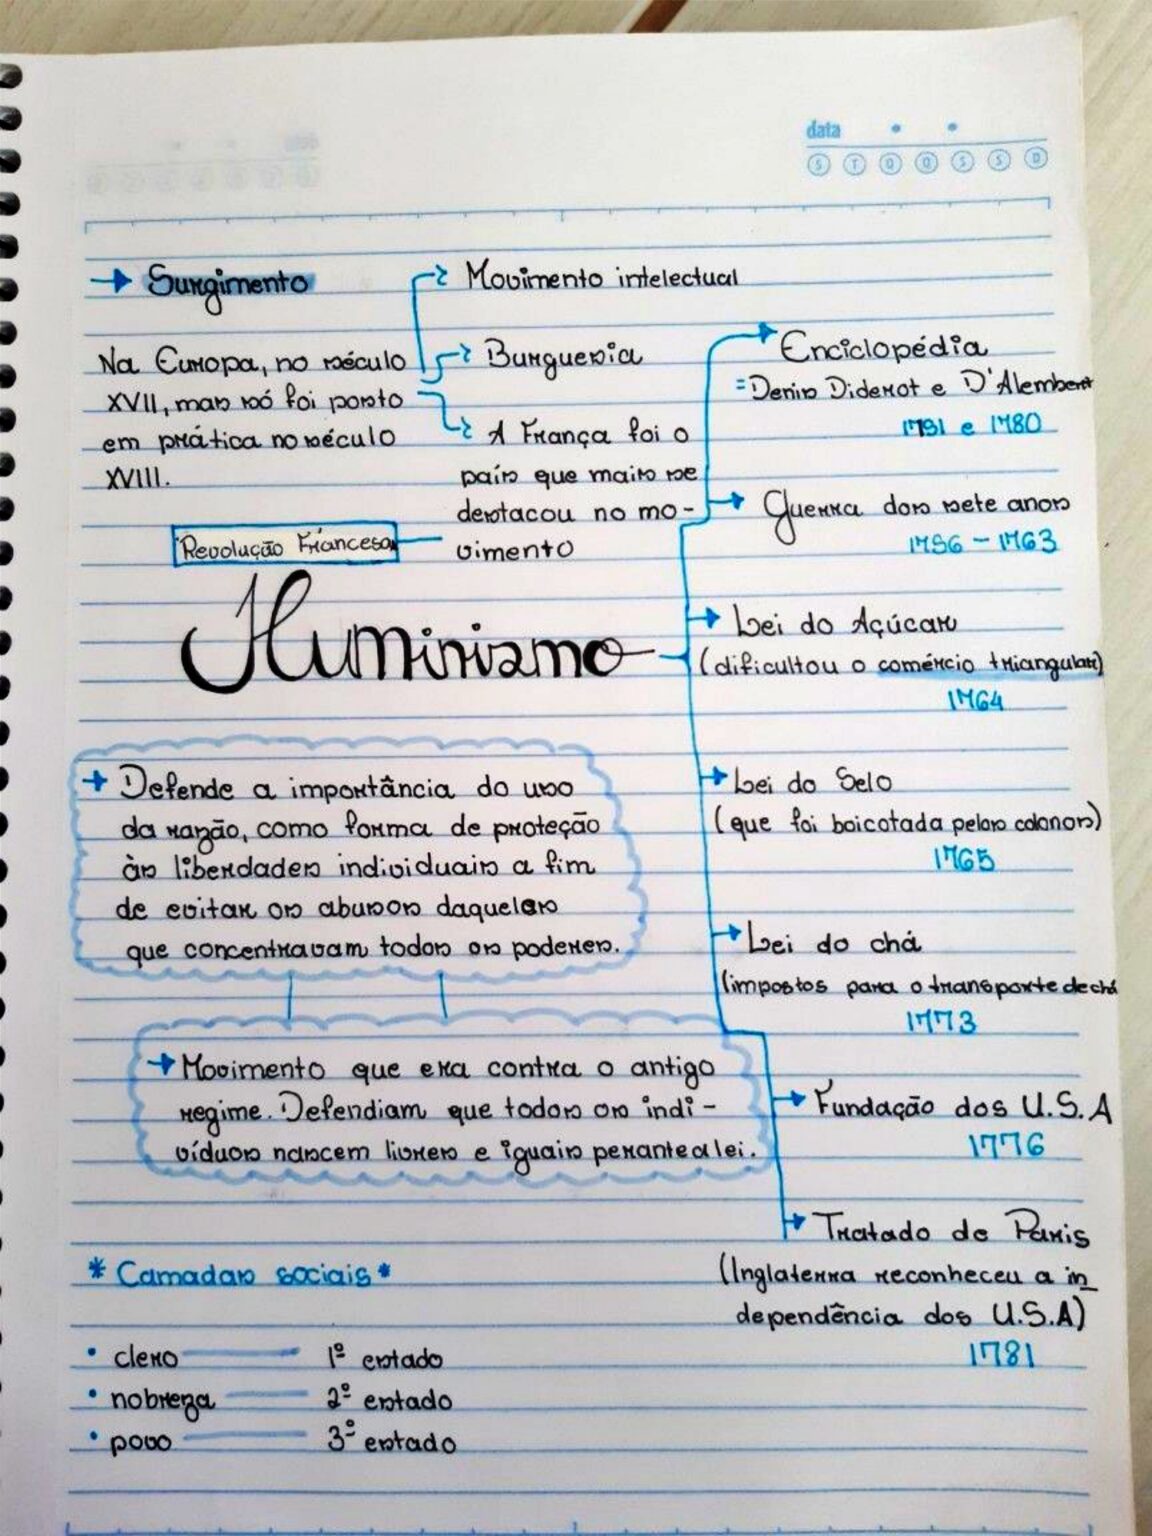 data
S T Q Q S S D
→ Surgimento
Na Europa, no século
XVII, mas só foi posto
em prática no século
XVIII.
Movimento intelectual
Burguesia
A França foi o
país que mais se
destacou no mo-
vimento
Revolução Francesa
Iluminismo
→ Defende a importância do uso
da razão, como forma de proteção
às liberdades individuais a fim
de evitar os abusos daqueles
que concentravam todos os poderes.
→ Movimento que era contra o antigo
regime. Defendiam que todos os indi-
víduos nascem livres e iguais perante a lei.
* Camadas sociais *
• clero — 1º estado
• nobreza — 2º estado
• povo — 3º estado
Enciclopédia
= Denis Diderot e D'Alembert
1751 e 1780
Guerra dos sete anos
1756 - 1763
Lei do Açúcar
(dificultou o comércio triangular)
1764
Lei do Selo
(que foi boicotada pelos colonos)
1765
Lei do chá
(impostos para o transporte de chá
1773
Fundação dos U.S.A
1776
Tratado de Paris
(Inglaterra reconheceu a in
dependência dos U.S.A)
1781